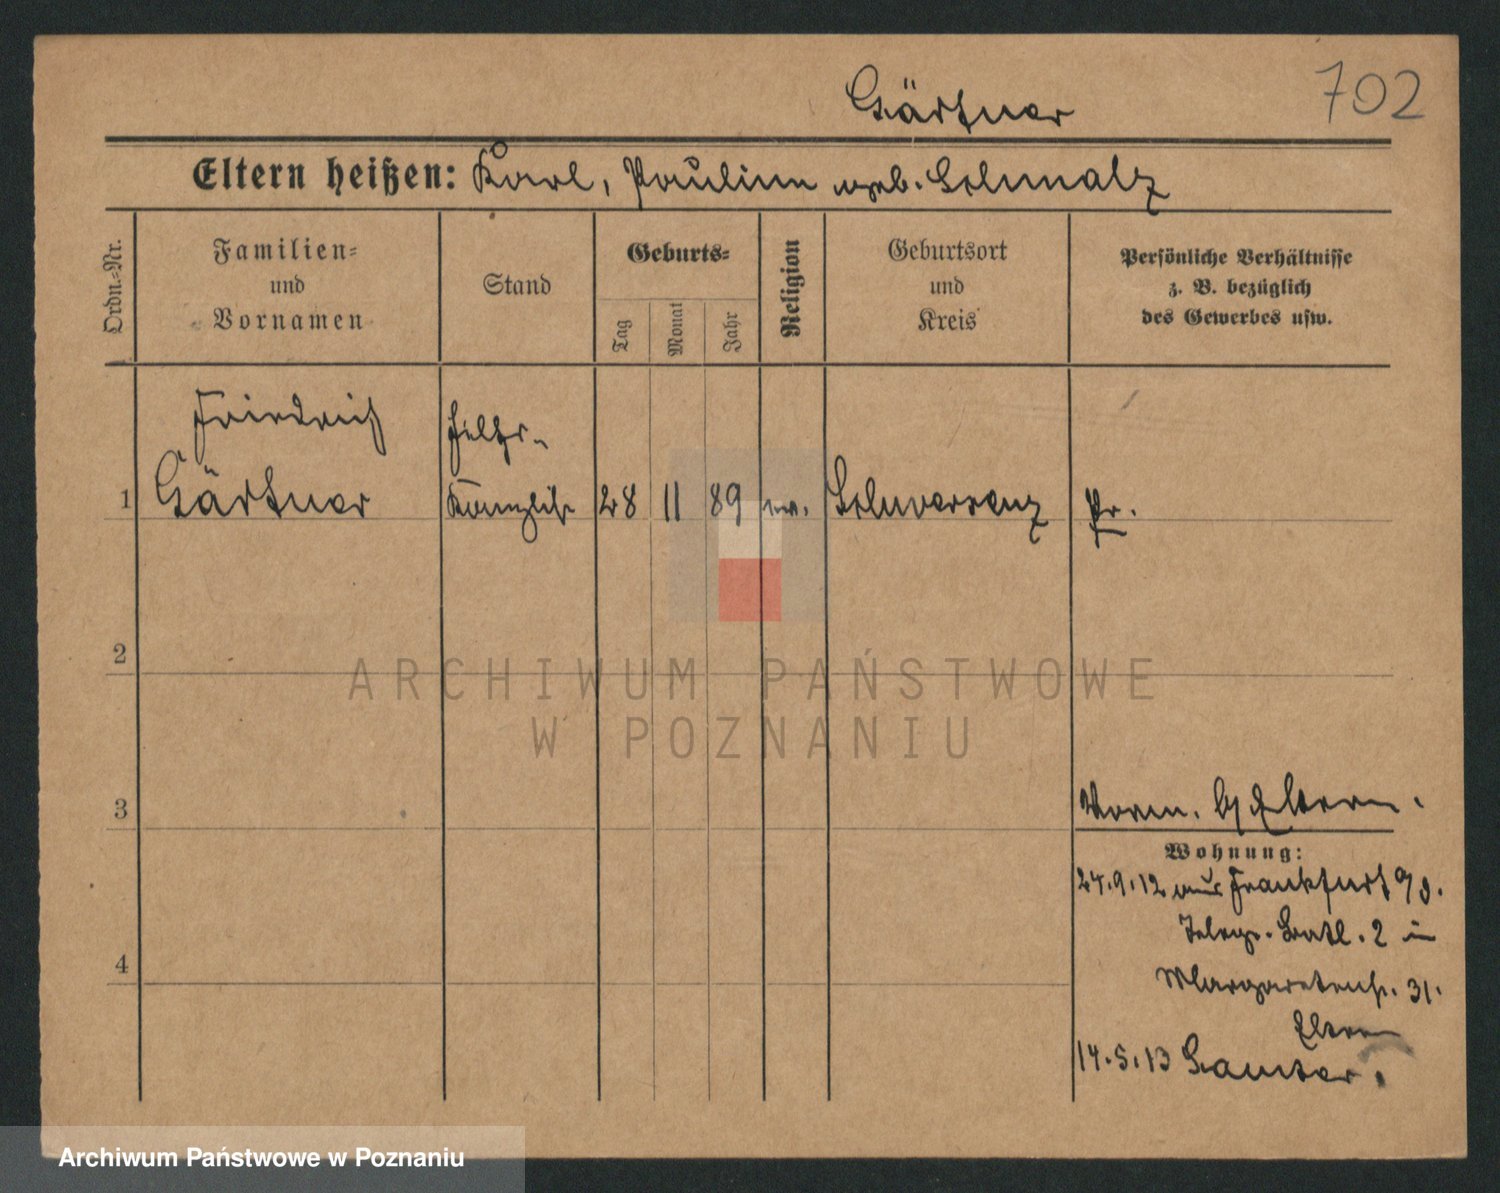 Gärtner
702
Eltern heißen: Karl, Pauline geb. Schmalz
Ordn.-Nr.
Familien-
und
Vornamen
Stand
Geburts-
Tag
Monat
Jahr
Religion
Geburtsort
und
Kreis
Persönliche Verhältnisse
z. B. bezüglich
des Gewerbes usw.
Friedrich
Gärtner
1 28 11 89 ev. Schwersenz Pr.
2
3
4
Vorm. b/ Eltern.
Wohnung:
24.9.12 aus Frankfurt a/O.
Telegr. Batl. 2 in
Margaretenstr. 31.
Eltern
14.5.13 Samter.
ARCHIWUM PAŃSTWOWE
W POZNANIU
Archiwum Państwowe w Poznaniu